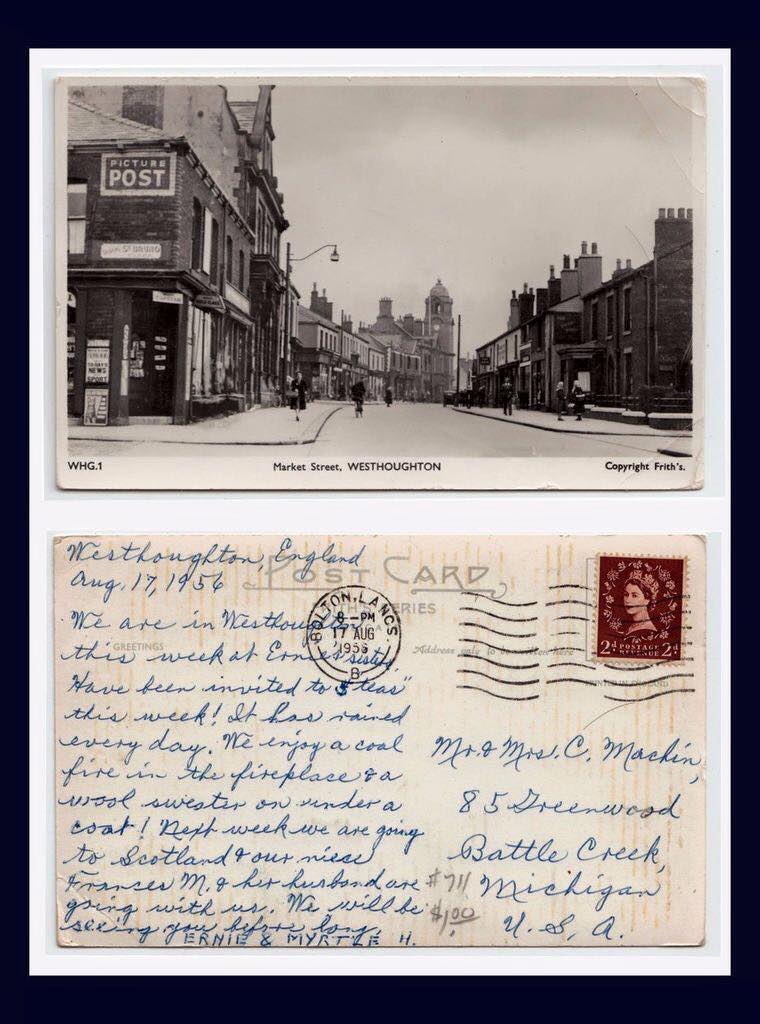 PICTURE
POST
ST BRUNO
NEWS
SPORT
WHG.1
Market Street, WESTHOUGHTON
Copyright Frith's.
POST CARD
SERIES
GREETINGS
Address only to be written here
BOLTON, LANCS.
8-PM
17 AUG
1956
B
2d POSTAGE REVENUE 2d
Westhoughton, England
Aug. 17, 1956
We are in Westhoughton
this week at Ernie's sisters
Have been invited to 5 "teas"
this week! It has rained
every day. We enjoy a coal
fire in the fireplace & a
wool swester on under a
coat! Next week we are going
to Scotland & our niece
Frances M. & her husband are
going with us. We will be
seeing you before long.
ERNIE & MYRTLE H.
Mr. & Mrs. C. Machin,
85 Greenwood
Battle Creek,
Michigan
U. S. A.
#711
$1.00